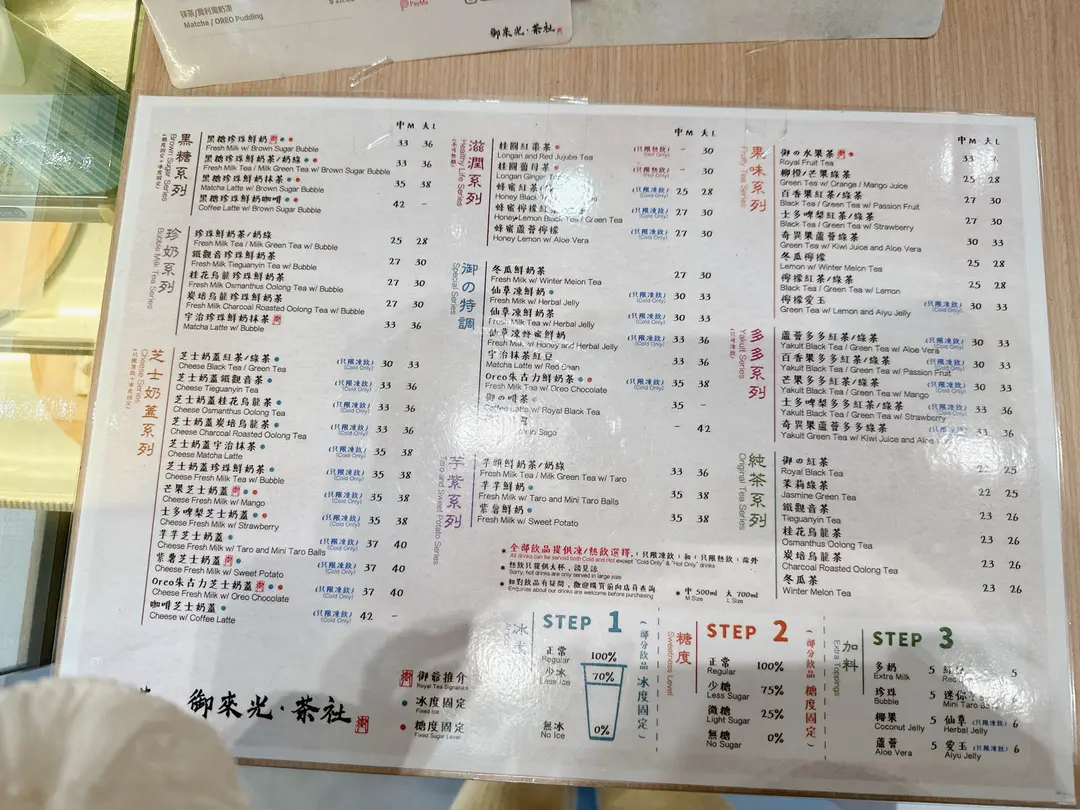 抹茶/奧利奧奶凍
Matcha / OREO Pudding
PayMe
御來光·茶社
黑糖系列
Brown Sugar Series
中M 大L
黑糖珍珠鮮奶 33 36
Fresh Milk w/ Brown Sugar Bubble
黑糖珍珠鮮奶茶/奶綠 33 36
Fresh Milk Tea / Milk Green Tea w/ Brown Sugar Bubble
黑糖珍珠鮮奶抹茶 35 38
Matcha Latte w/ Brown Sugar Bubble
黑糖珍珠鮮奶咖啡 42 –
Coffee Latte w/ Brown Sugar Bubble
珍奶系列
Bubble Milk Tea Series
珍珠鮮奶茶/奶綠 25 28
Fresh Milk Tea / Milk Green Tea w/ Bubble
鐵觀音珍珠鮮奶茶 27 30
Fresh Milk Tieguanyin Tea w/ Bubble
桂花烏龍珍珠鮮奶茶 27 30
Fresh Milk Osmanthus Oolong Tea w/ Bubble
炭培烏龍珍珠鮮奶茶 27 30
Fresh Milk Charcoal Roasted Oolong Tea w/ Bubble
宇治珍珠鮮奶抹茶 33 36
Matcha Latte w/ Bubble
芝士奶蓋系列
Cheese Series
芝士奶蓋紅茶/綠茶 (只限凍飲) 30 33
Cheese Black Tea / Green Tea (Cold Only)
芝士奶蓋鐵觀音茶 (只限凍飲) 33 36
Cheese Tieguanyin Tea (Cold Only)
芝士奶蓋桂花烏龍茶 (只限凍飲) 33 36
Cheese Osmanthus Oolong Tea (Cold Only)
芝士奶蓋炭培烏龍茶 (只限凍飲) 33 36
Cheese Charcoal Roasted Oolong Tea (Cold Only)
芝士奶蓋宇治抹茶 (只限凍飲) 35 38
Cheese Matcha Latte (Cold Only)
芝士奶蓋珍珠鮮奶茶 (只限凍飲) 35 38
Cheese Fresh Milk Tea w/ Bubble (Cold Only)
芒果芝士奶蓋 (只限凍飲) 35 38
Cheese Fresh Milk w/ Mango (Cold Only)
士多啤梨芝士奶蓋 (只限凍飲) 35 38
Cheese Fresh Milk w/ Strawberry (Cold Only)
芋芋芝士奶蓋 (只限凍飲) 37 40
Cheese Fresh Milk w/ Taro and Mini Taro Balls (Cold Only)
紫薯芝士奶蓋 (只限凍飲) 37 40
Cheese Fresh Milk w/ Sweet Potato (Cold Only)
Oreo朱古力芝士奶蓋 (只限凍飲) 37 40
Cheese Fresh Milk w/ Oreo Chocolate (Cold Only)
咖啡芝士奶蓋 (只限凍飲) 42 –
Cheese w/ Coffee Latte (Cold Only)
御來光·茶社
御爺推介
Royal Tea Signature
冰度固定
Fixed Ice
糖度固定
Fixed Sugar Level
滋潤系列
Healthy Life Series
中M 大L
桂圓紅棗茶 (只限熱飲) – 30
Longan and Red Jujube Tea (Hot Only)
桂圓薑母茶 (只限熱飲) – 30
Longan Ginger (Hot Only)
蜂蜜紅茶 (只限凍飲) 25 28
Honey Black T (Cold Only)
蜂蜜檸檬紅 (只限凍飲) 27 30
Honey Lemon Black Tea / Green Tea (Cold Only)
蜂蜜蘆薈檸檬 (只限凍飲) 27 30
Honey Lemon w/ Aloe Vera (Cold Only)
御の特調
Special Series
冬瓜鮮奶茶 27 30
Fresh Milk w/ Winter Melon Tea
仙草凍鮮奶 (只限凍飲) 30 33
Fresh Milk w/ Herbal Jelly (Cold Only)
仙草凍鮮奶茶 (只限凍飲) 30 33
Fresh Milk Tea w/ Herbal Jelly (Cold Only)
仙草凍蜂蜜鮮奶 (只限凍飲) 33 36
Fresh Milk w/ Honey and Herbal Jelly (Cold Only)
宇治抹茶紅豆 33 36
Matcha Latte w/ Red Bean
Oreo朱古力鮮奶茶 (只限凍飲) 35 38
Fresh Milk Tea w/ Oreo Chocolate (Cold Only)
御の啡茶 35 –
Coffee Latte w/ Royal Black Tea
– 42
Sago
芋紫系列
Taro and Sweet Potato Series
芋頭鮮奶茶/奶綠 33 36
Fresh Milk Tea / Milk Green Tea w/ Taro
芋芋鮮奶 35 38
Fresh Milk w/ Taro and Mini Taro Balls
紫薯鮮奶 35 38
Fresh Milk w/ Sweet Potato
全部飲品提供凍/熱飲選擇,(只限凍飲)和(只限熱飲)除外
All drinks can be served both Cold and Hot except "Cold Only" & "Hot Only" drinks
熱飲只提供大杯,請見諒
Sorry, hot drinks are only served in large size
如對飲品有疑問,歡迎購買前向店員查詢
Enquiries about our drinks are welcome before purchasing
中 500ml 大 700ml
M Size L Size
果味系列
Fruity Tea Series
中M 大L
御の水果茶 33
Royal Fruit Tea
柳橙/芒果綠茶 25 28
Green Tea w/ Orange / Mango Juice
百香果紅茶/綠茶 27 30
Black Tea / Green Tea w/ Passion Fruit
士多啤梨紅茶/綠茶 27 30
Black Tea / Green Tea w/ Strawberry
奇異果蘆薈綠茶 30 33
Green Tea w/ Kiwi Juice and Aloe Vera
冬瓜檸檬 25 28
Lemon w/ Winter Melon Tea
檸檬紅茶/綠茶 25 28
Black Tea / Green Tea w/ Lemon
檸檬愛玉 (只限凍飲) 30 33
Green Tea w/ Lemon and Aiyu Jelly (Cold Only)
多多系列
Yakult Series
蘆薈多多紅茶/綠茶 (只限凍飲) 30 33
Yakult Black Tea / Green Tea w/ Aloe Vera (Cold Only)
百香果多多紅茶/綠茶 (只限凍飲) 30 33
Yakult Black Tea / Green Tea w/ Passion Fruit (Cold Only)
芒果多多紅茶/綠茶 (只限凍飲) 30 33
Yakult Black Tea / Green Tea w/ Mango (Cold Only)
士多啤梨多多紅茶/綠茶 (只限凍飲) 33 36
Yakult Black Tea / Green Tea w/ Strawberry (Cold Only)
奇異果蘆薈多多綠茶 (只限凍飲) 33 36
Yakult Green Tea w/ Kiwi Juice and Aloe (Cold Only)
純茶系列
Original Tea Series
御の紅茶 22 25
Royal Black Tea
茉莉綠茶 22 25
Jasmine Green Tea
鐵觀音茶 23 26
Tieguanyin Tea
桂花烏龍茶 23 26
Osmanthus Oolong Tea
炭培烏龍茶 23 26
Charcoal Roasted Oolong Tea
冬瓜茶 23 26
Winter Melon Tea
STEP 1
(部分飲品冰度固定)
正常 100%
Regular
少冰 70%
Less Ice
無冰 0%
No Ice
糖度
Sweetness Level
STEP 2
(部分飲品糖度固定)
正常 100%
Regular
少糖 75%
Less Sugar
微糖 25%
Light Sugar
無糖 0%
No Sugar
加料
Extra Toppings
STEP 3
多奶 5
Extra Milk
珍珠 5
Bubble
椰果 5
Coconut Jelly
蘆薈 5
Aloe Vera
5
迷你
Mini Taro
仙草 (只限凍飲) 6
Herbal Jelly
愛玉 (只限凍飲) 6
Aiyu Jelly